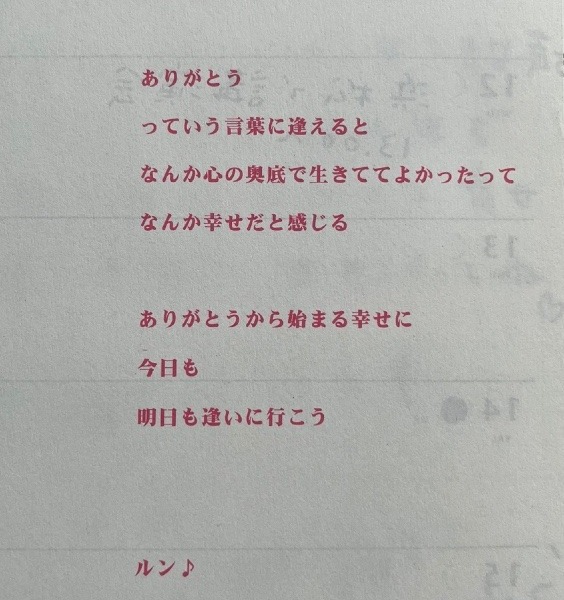 ありがとう
っていう言葉に逢えると
なんか心の奥底で生きててよかったって
なんか幸せだと感じる
ありがとうから始まる幸せに
今日も
明日も逢いに行こう
ルン♪
12
13:00
13
14
15